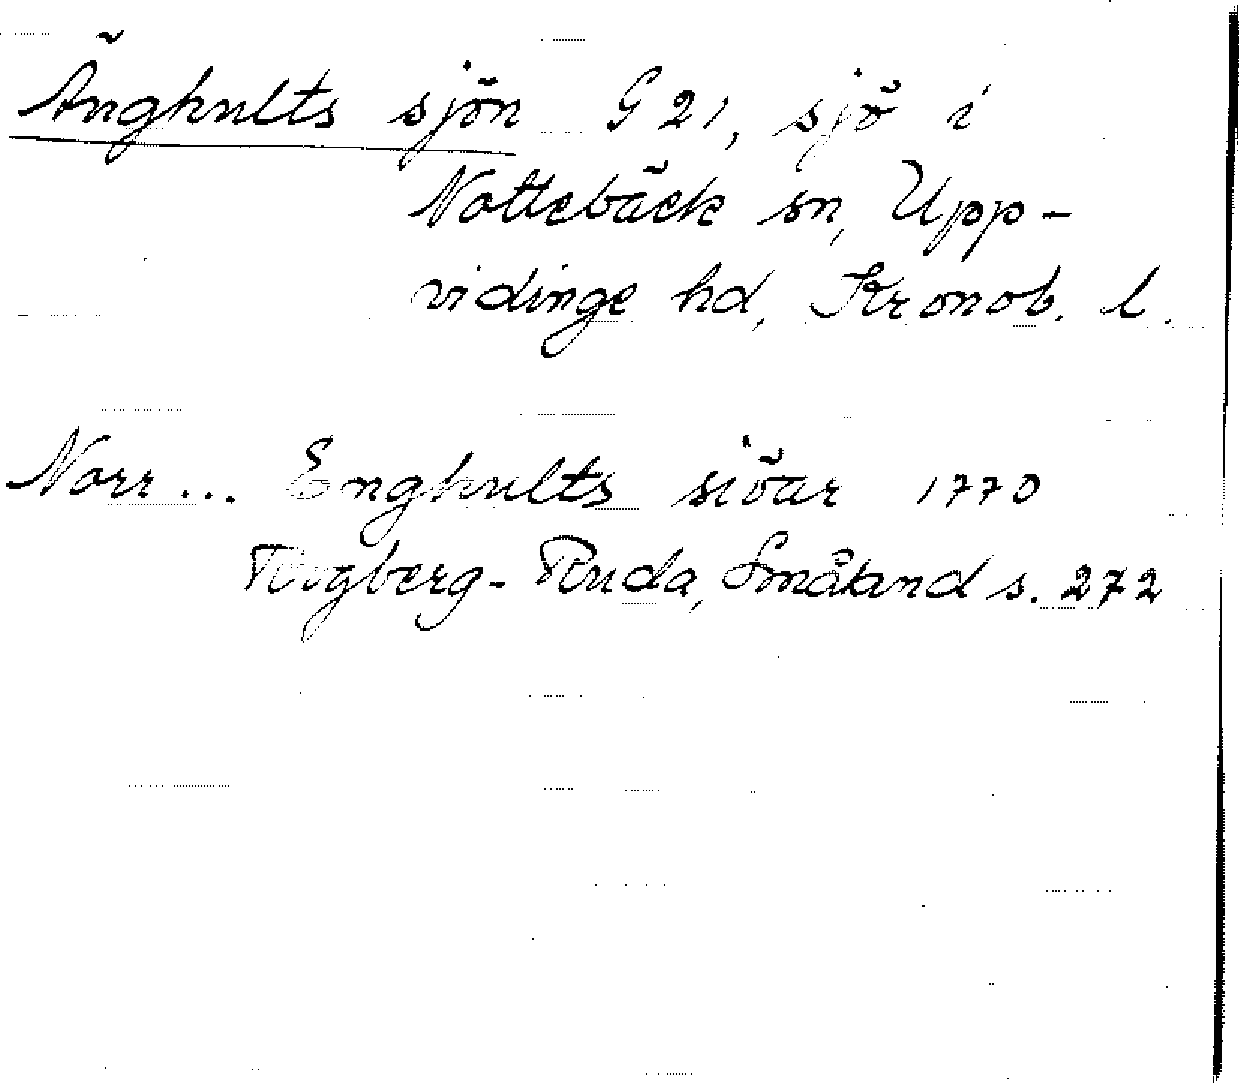 Änghults sjön G 21, sjö i
Nottebäck sn, Upp-
vidinge hd, Kronob. l.
Norr ... Enghults siöar 1770
Rogberg-Ruda, Småland s. 272